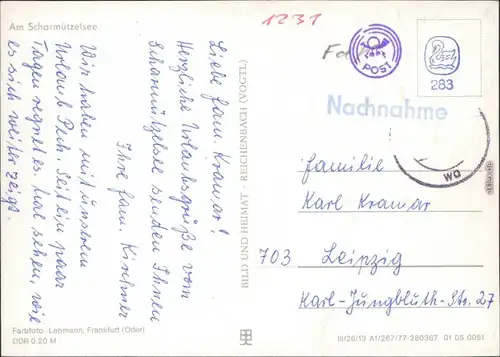 Am Scharmützelsee
1231
POST
283
Nachnahme
Liebe Fam. Kramar!
Herzliche Urlaubsgrüße vom
Scharmützelsee senden Ihnen
Ihre Fam. Kirchner
Wir haben mit unserem
Urlaub Pech. Seit ein paar
Tagen regnet es. Mal sehen, wie
es sich weiter zeigt.
BILD UND HEIMAT · REICHENBACH (VOGTL)
Familie
Karl Kramar
703 Leipzig
Karl-Jungbluth-Str. 27
Farbfoto: Lehmann, Frankfurt (Oder)
DDR 0.20 M
III/26/13 A1/267/77-280367 01 05 0051